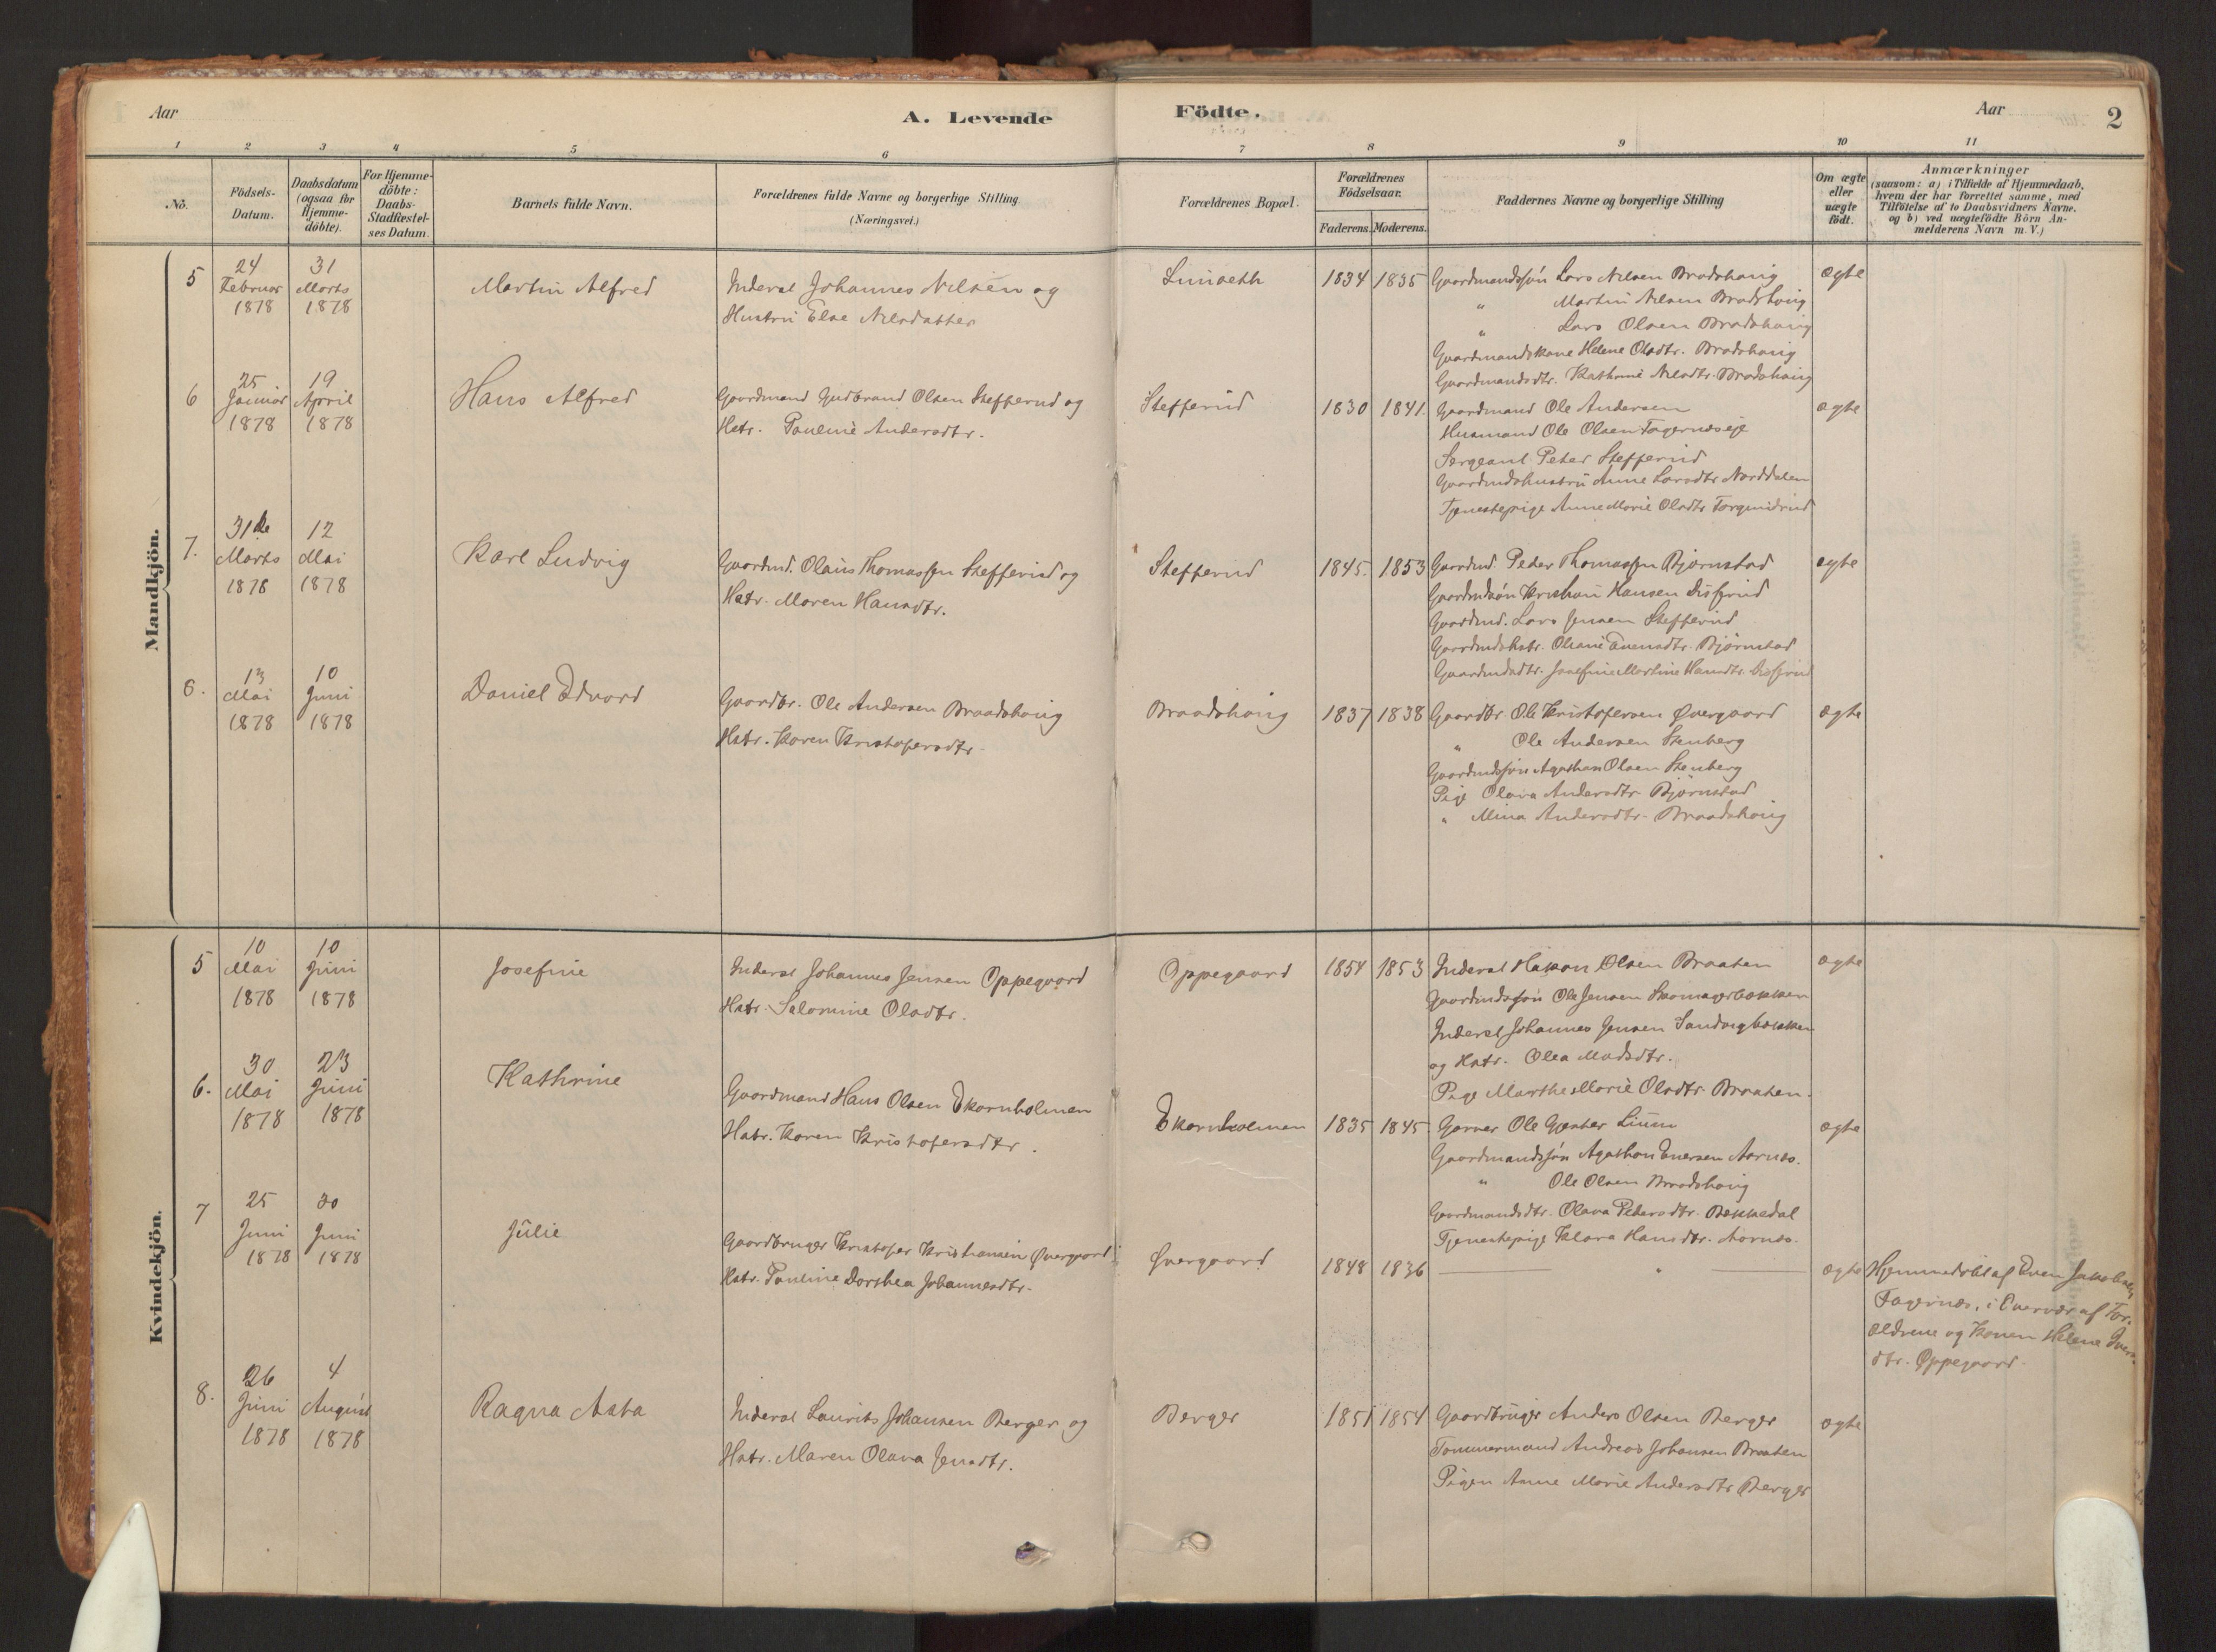 Aar
A. Levende
Födte.
Aar
2
1 2 3 4 5 6 7 8 9 10 11
No.
Födsels-
Datum.
Daabsdatum
(ogsaa for
Hjemme-
döbte).
For Hjemme-
döbte:
Daabs-
Stadfæstel-
ses Datum.
Barnets fulde Navn.
Forældrenes fulde Navne og borgerlige Stilling
(Næringsvei.)
Forældrenes Bopæl.
Forældrenes
Födselsaar.
Faderens. Moderens.
Faddernes Navne og borgerlige Stilling
Om ægte
eller
uægte
födt.
Anmærkninger
(saasom: a) i Tilfælde af Hjemmedaab,
hvem der har forrettet samme, med
Tilföielse af to Daabsvidners Navne.
og b) ved uægtefödte Börn An-
melderens Navn m. V.)
Mandkjön.
5
24
Februar
1878
31
Marts
1878
Martin Alfred
Inderst Johannes Nilsen og
Hustru Else Nilsdatter
1834 1835
Gaardmandssøn Lars Nilsen Bradshaug
" Martin Nilsen Bradshaug
" Lars Olsen Bradshaug
Gaardmandskone Helene Olsdtr. Bradshaug
Gaardmandsdtr. Kathrine Nilsdtr. Bradshaug
ægte
6
25
Januar
1878
19
April
1878
Hans Alfred
Gaardmand Gudbrand Olsen Stefferud og
Hstr. Pauline Andersdtr.
Stefferud
1830 1841.
Gaardmand Ole Andersen
Husmand Ole Olsen Fagernæseje
Sergeant Peter Stefferud
Gaardmdshustru Anne Larsdtr. Norddalen
Tjenestepige Anne Marie Olsdtr.
ægte
7.
31te
Marts
1878
12
Mai
1878
Karl Ludvig
Gaardmd. Olaus Thomassen Stefferud og
Hstr. Maren Hansdtr.
Stefferud
1845. 1853
Gaardmd. Peder Thomassen Bjørnstad
Gaardmdssøn Kristian Hansen
Gaardmd. Lars Jensen Stefferud
Gaardmdshstr. Oliane Evensdtr. Bjørnstad
Gaardmdsdtr. Josefine Martine Hansdtr.
ægte
8.
13
Mai
1878
10
Juni
1878
Daniel Edvard
Gaardbr. Ole Andersen Braadshaug
Hstr. Karen Kristofersdtr.
Braadshaug
1837 1838
Gaardbr. Ole Kristofersen Øvergaard
" Ole Andersen Stenberg
Gaardmdssøn Agathon Olsen Stenberg
Pige Olava Andersdtr. Bjørnstad
" Mina Andersdtr. Braadshaug
ægte
Kvindekjön.
5
10
Mai
1878
10
Juni
1878
Josefine
Inderst Johannes Jensen Oppegaard
Hstr. Salomine Olsdtr.
Oppegaard
1854 1853
Inderst Hakon Olsen Braaten
Gaardmdssøn Ole Jensen Skomagerbakken
Inderst Johannes Jensen Sandvigbakken
og Hstr. Olea Madsdtr.
Pige Marthe Marie Olsdtr. Braaten.
ægte
6.
30
Mai
1878
23
Juni
1878
Kathrine
Gaardmand Hans Olsen Ekornholmen
Hstr. Karen Kristofersdtr.
Ekornholmen
1835 1845
Garver Ole Lium
Gaardmandssøn Agathon Evensen Aarnæs.
" Ole Olsen Braadshaug
Gaardmandsdtr. Olava Petersdtr. Bækkedal
Tjenestepige Klara Hansdtr. Aarnæs.
ægte
7
25
Juni
1878
30
Juni
1878
Julie
Gaardbruger Kristofer Kristiansen Øvergaard
Hstr. Pauline Dorthea Johannesdtr.
Øvergaard
1848 1836
"
ægte
Hjemmedøbt af Even Jakobsen
Fagernæs, i Overvær af For-
ældrene og Konen Helene Ivers-
dtr. Oppegaard.
8.
26
Juni
1878
4
August
1878
Ragna Asta
Inderst Laurits Johansen Berger og
Hstr. Maren Olava Jensdtr.
Berger
1851 1854
Gaardbruger Anders Olsen Berger
Tømmermand Andreas Johansen Braaten
Pigen Anne Marie Andersdtr. Berger
ægte